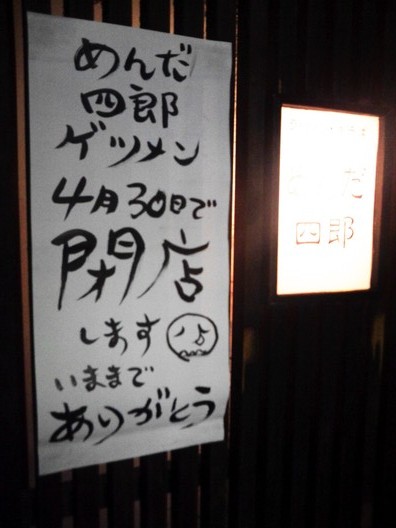 めんだ
四郎
ゲツメン
4月30日で
閉店
します
いままで
ありがとう
だ
四郎